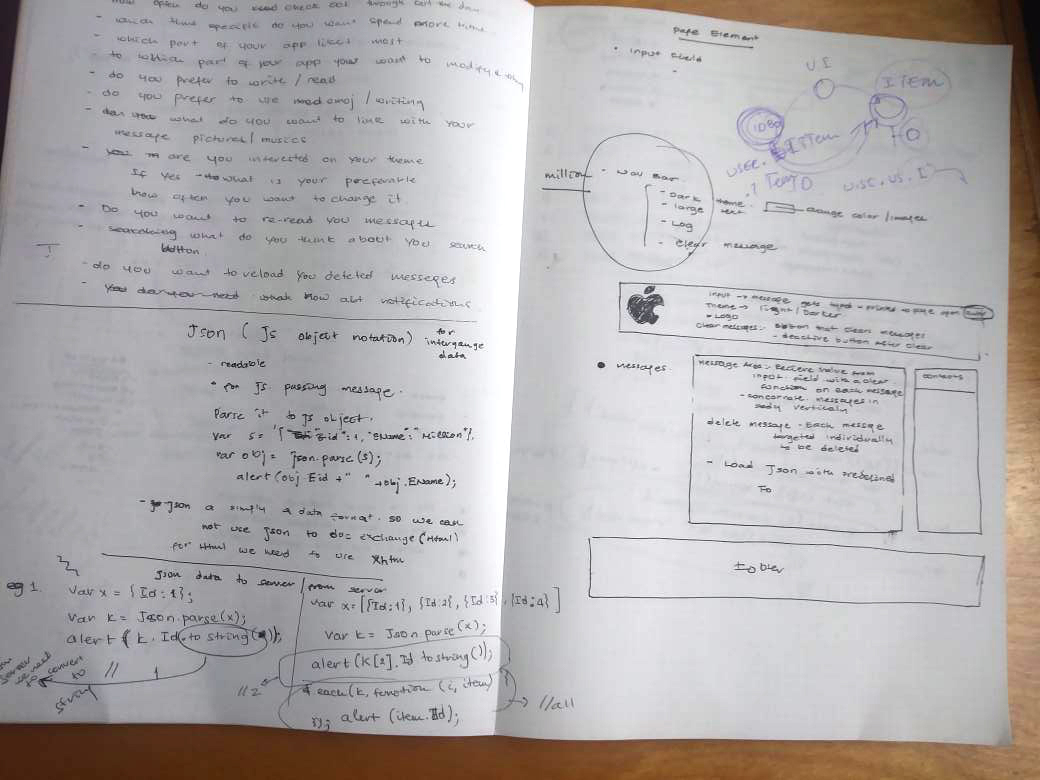 often do you need check out through out the day
- which time specific do you want spend more time
- which part of your app likes most
- to which part of your app your want to modify
- do you prefer to write / read
- do you prefer to use emoj / writing
- what do you want to link with your
message pictures / musics
- are you interested on your theme
If yes - what is your preferable
how often you want to change it.
- Do you want to re-read you messages
- what do you think about you search
button
- do you want to reload you deleted messeges
- what how abt notifications
Json ( Js object notation) for
intergange
data
- readable
* for Js. passing message.
Parse it to Js object.
var s = '{ "Eid":1, "EName":"Million"},
var obj = json.parse(s);
alert(obj Eid +" "+obj.EName);
- Json a simply a data format. so we can
not use json to do exchange (Html)
for Html we need to use xhtm
Json data to server / from server
eg 1. Var x = {Id:1};
Var k = Json.parse(x);
alert ( k. Id.to string( ));
server
we need
to convert
to
string
// 1
Var x=[{Id:1}, {Id:2}, {Id:3}, {Id:4}]
Var k = Json parse(x);
alert(k[1].Id tostring());
//2
each(k, function (i, item) {
}); alert (item.Id);
//all
Page Element
• Input Field
-
UI
ITEM
1080
USER.
ITEM
million
- Nav Bar.
- Dark theme.
- large text
- Log
- Clear message
change color / images
Input → message gets typed - printed to page upon
Theme → light / Darker.
* Logo
Clear messages:- button that clears messages
- deactive button after clear
• messages.
message Area:- Recieve value from
input field with a clear
function on each message
- concornate messages in
body verticaly
delete message - Each message
targeted individually
to be deleted
- Load Json with predefined
Fo
contacts